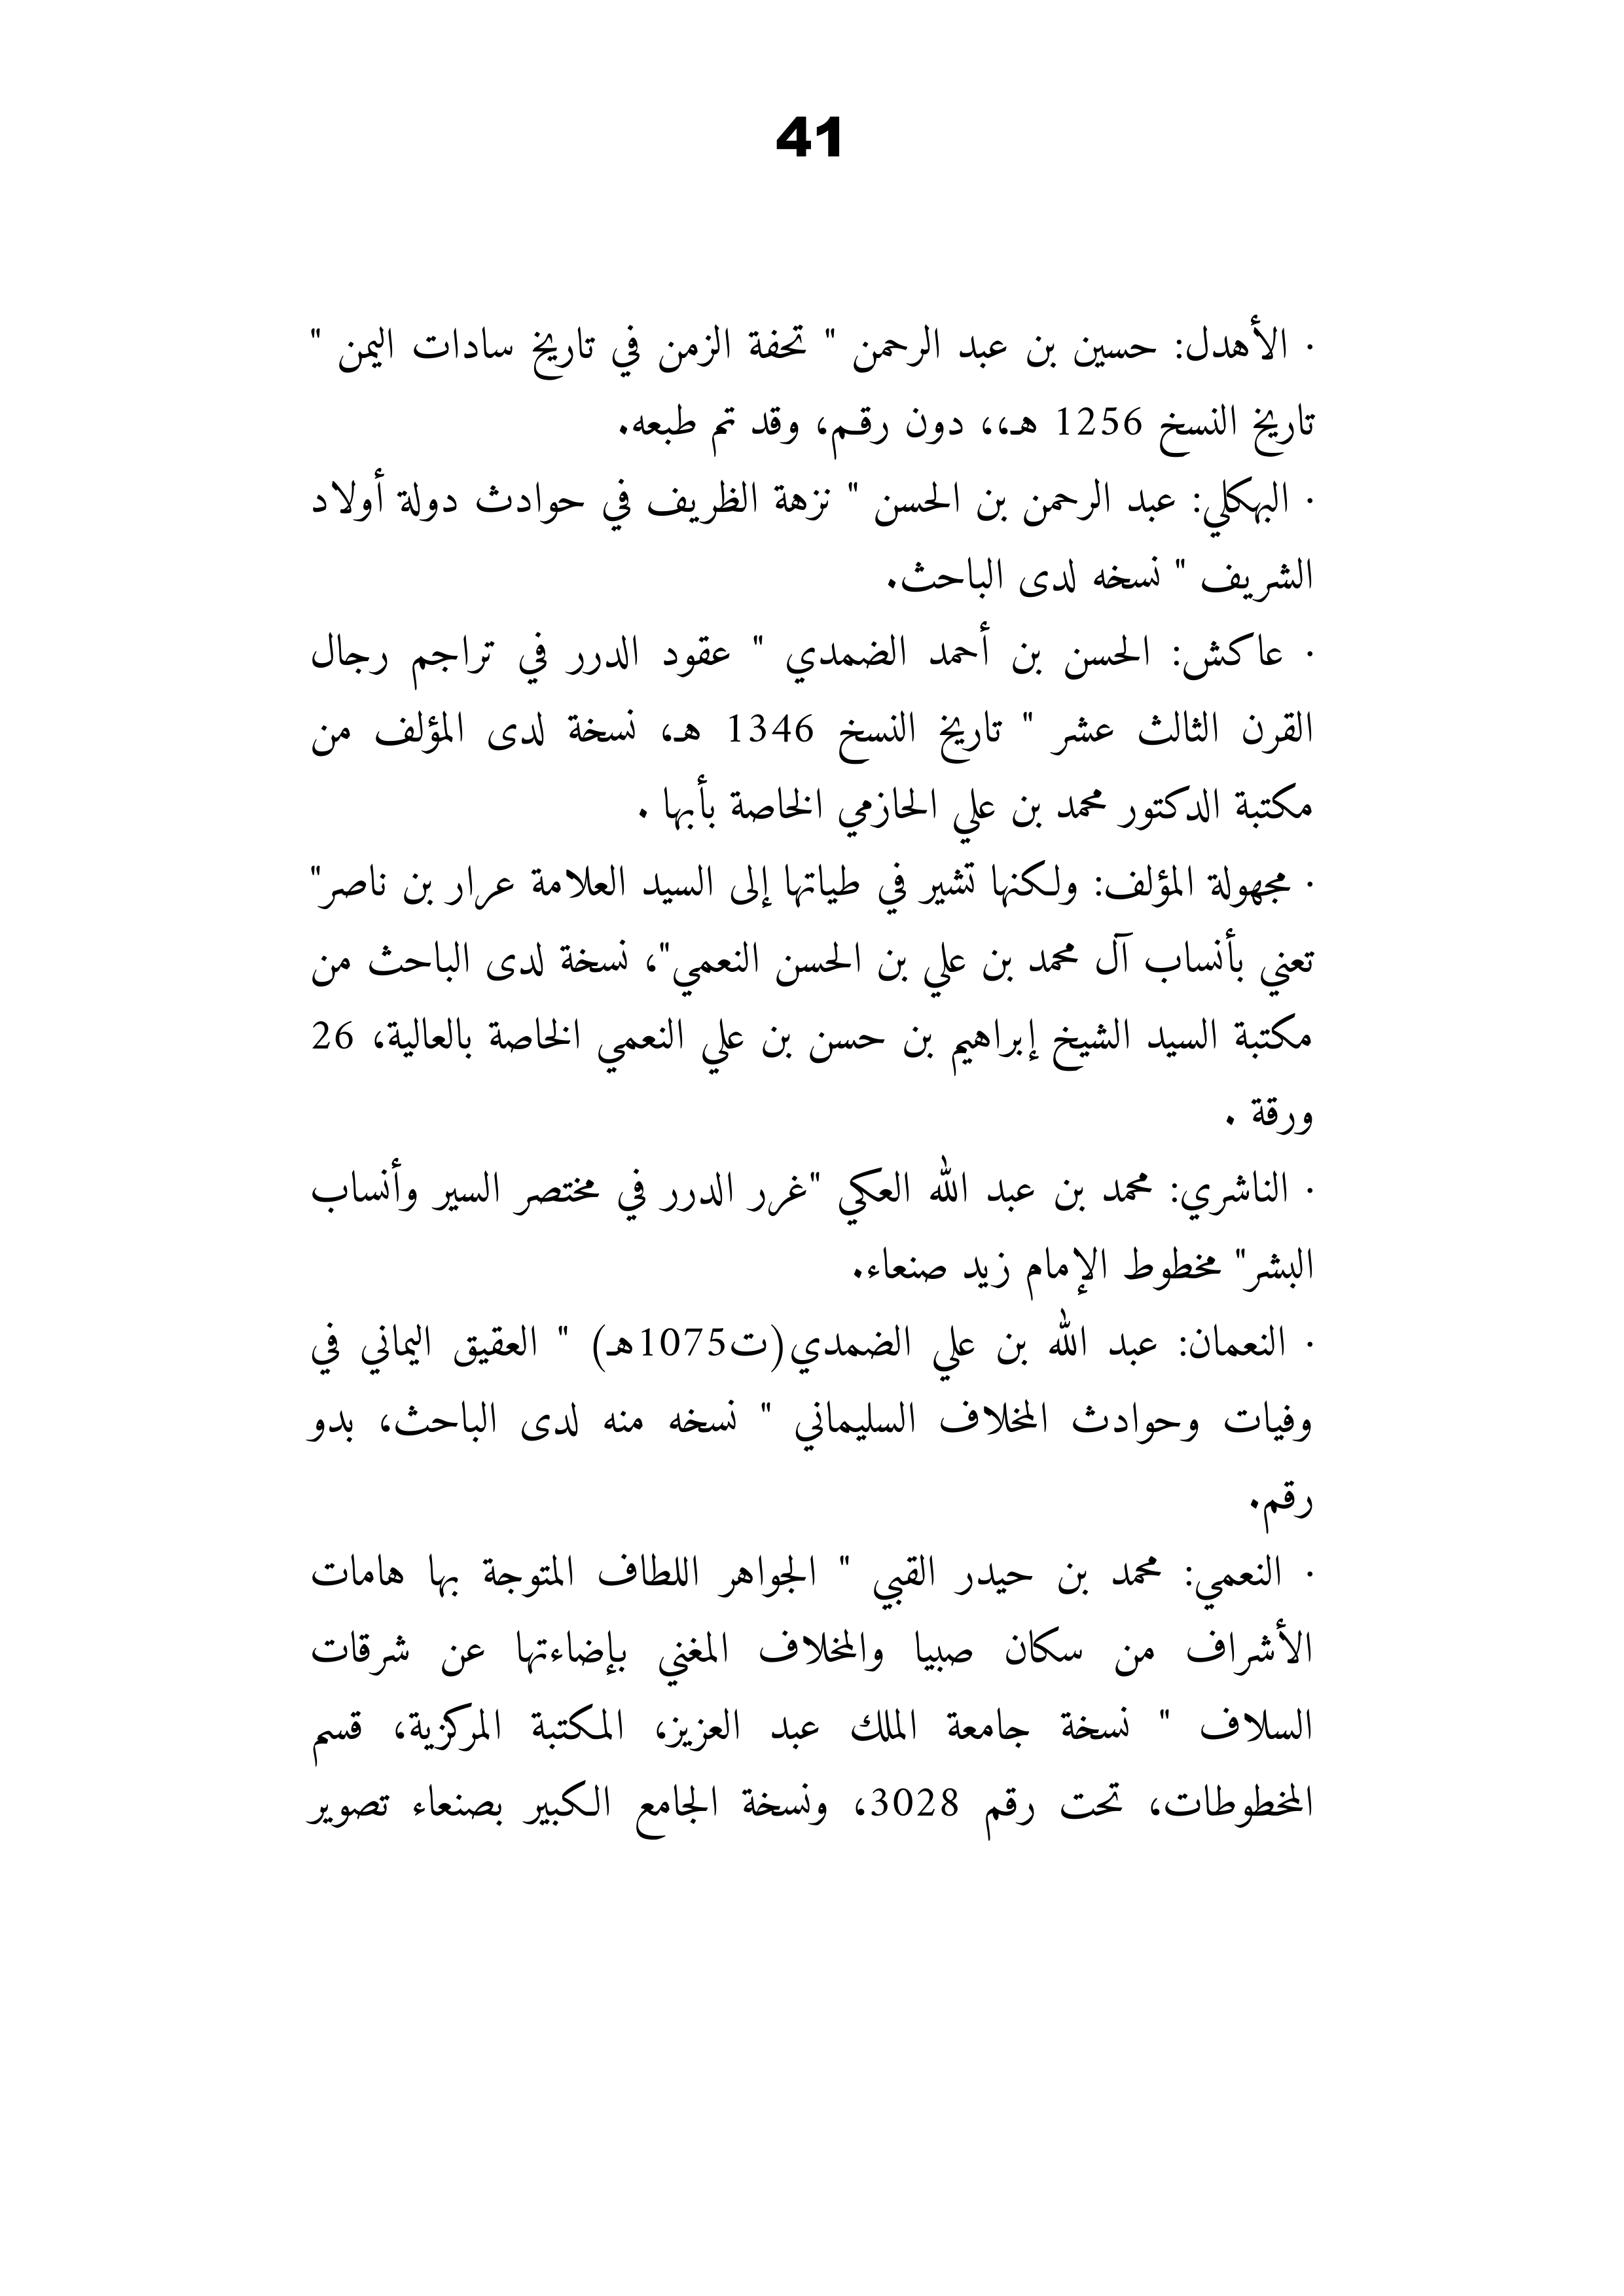 41
· الأهدل: حسين بن عبد الرحمن " تحفة الزمن في تاريخ سادات اليمن "
تاريخ النسخ 1256 هـ،، دون رقـم، وقد تم طبعه.
· البهكلي: عبد الرحمن بن الحسن " نزهة الظريف في حوادث دولة أولاد
الشريف " نسخه لدى الباحث.
· عاكش: الحسن بن أحمد الضمدي " عقود الدرر في تراجم رجال
القرن الثالث عشر " تاريخ النسخ 1346 هـ، نسخة لدى المؤلف من
مكتبة الدكتور محمد بن علي الحازمي الخاصة بأبها .
· مجهولة المؤلف: ولكنها تشير في طياتها إلى السيد العلامة عرار بن ناصر"
تعني بأنساب آل محمد بن علي بن الحسن النعمي"، نسخة لدى الباحث من
مكتبة السيد الشيخ إبراهيم بن حسن بن علي النعمي الخاصة بالعالية، 26
ورقة .
· الناشري: محمد بن عبد الله العكي "غرر الدرر في مختصر السير وأنساب
البشر" مخطوط الإمام زيد صنعاء.
· النعمان: عبد الله بن علي الضمدي(ت1075هـ) " العقيق اليماني في
وفيات وحوادث المخلاف السليماني " نسخه منه لدى الباحث، بدو
رقم.
· النعمي: محمد بن حيدر القبي " الجواهر اللطاف المتوجة بها هامات
الأشراف من سكان صبيا والمخلاف المغني بإضاءتها عن شرقات
السلاف " نسخة جامعة الملك عبد العزيز، المكتبة المركزية، قسم
المخطوطات، تحت رقم 3028، ونسخة الجامع الكبير بصنعاء تصوير